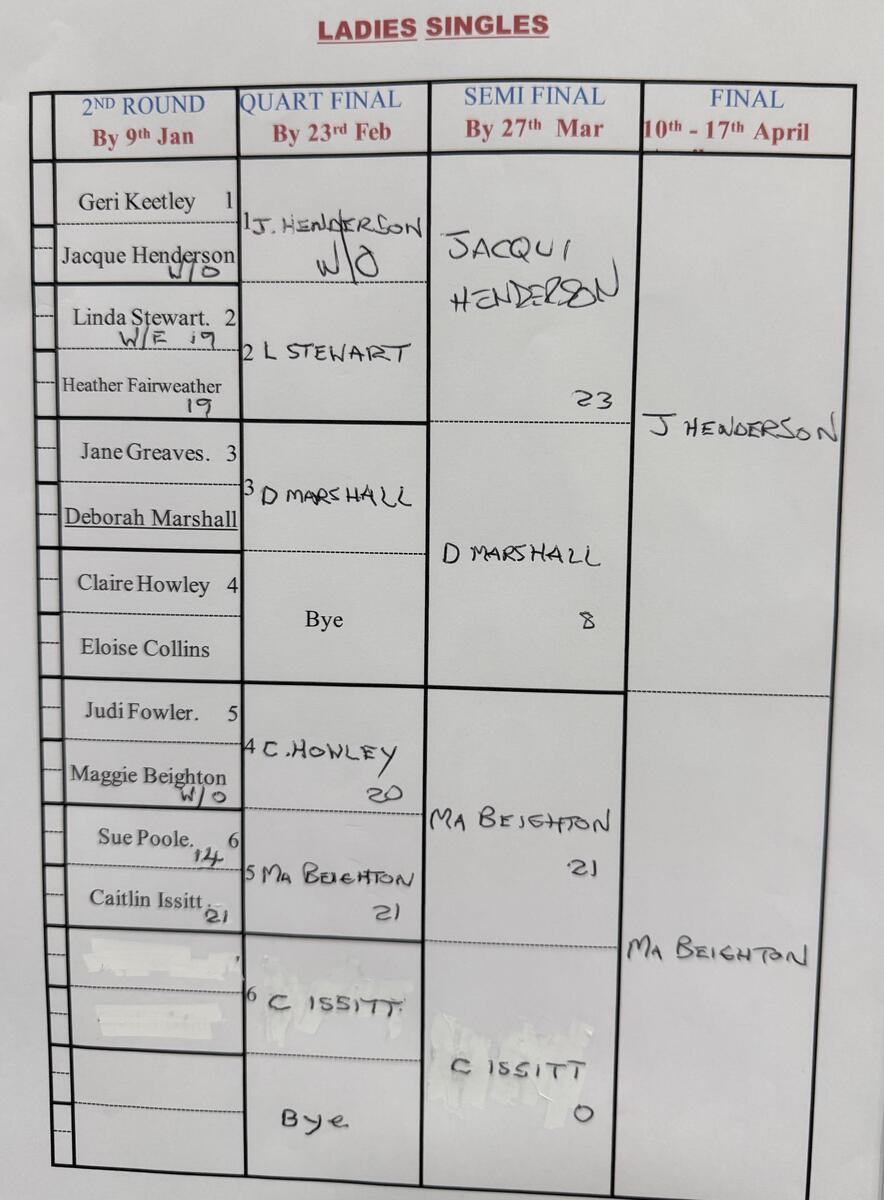 LADIES SINGLES
2ND ROUND
By 9th Jan
QUART FINAL
By 23rd Feb
SEMI FINAL
By 27th Mar
FINAL
10th - 17th April
Geri Keetley 1
Jacque Henderson
W/O
Linda Stewart. 2
W/E 19
Heather Fairweather
19
Jane Greaves. 3
Deborah Marshall
Claire Howley 4
Eloise Collins
Judi Fowler. 5
Maggie Beighton
W/O
Sue Poole. 6
14
Caitlin Issitt.
21
1 J. HENDERSON
W/O
2 L STEWART
3 D MARSHALL
Bye
4 C. HOWLEY
20
5 MA BEIGHTON
21
6 C ISSITT.
Bye
JACQUI
HENDERSON
23
D MARSHALL
8
MA BEIGHTON
21
C ISSITT
0
J HENDERSON
MA BEIGHTON